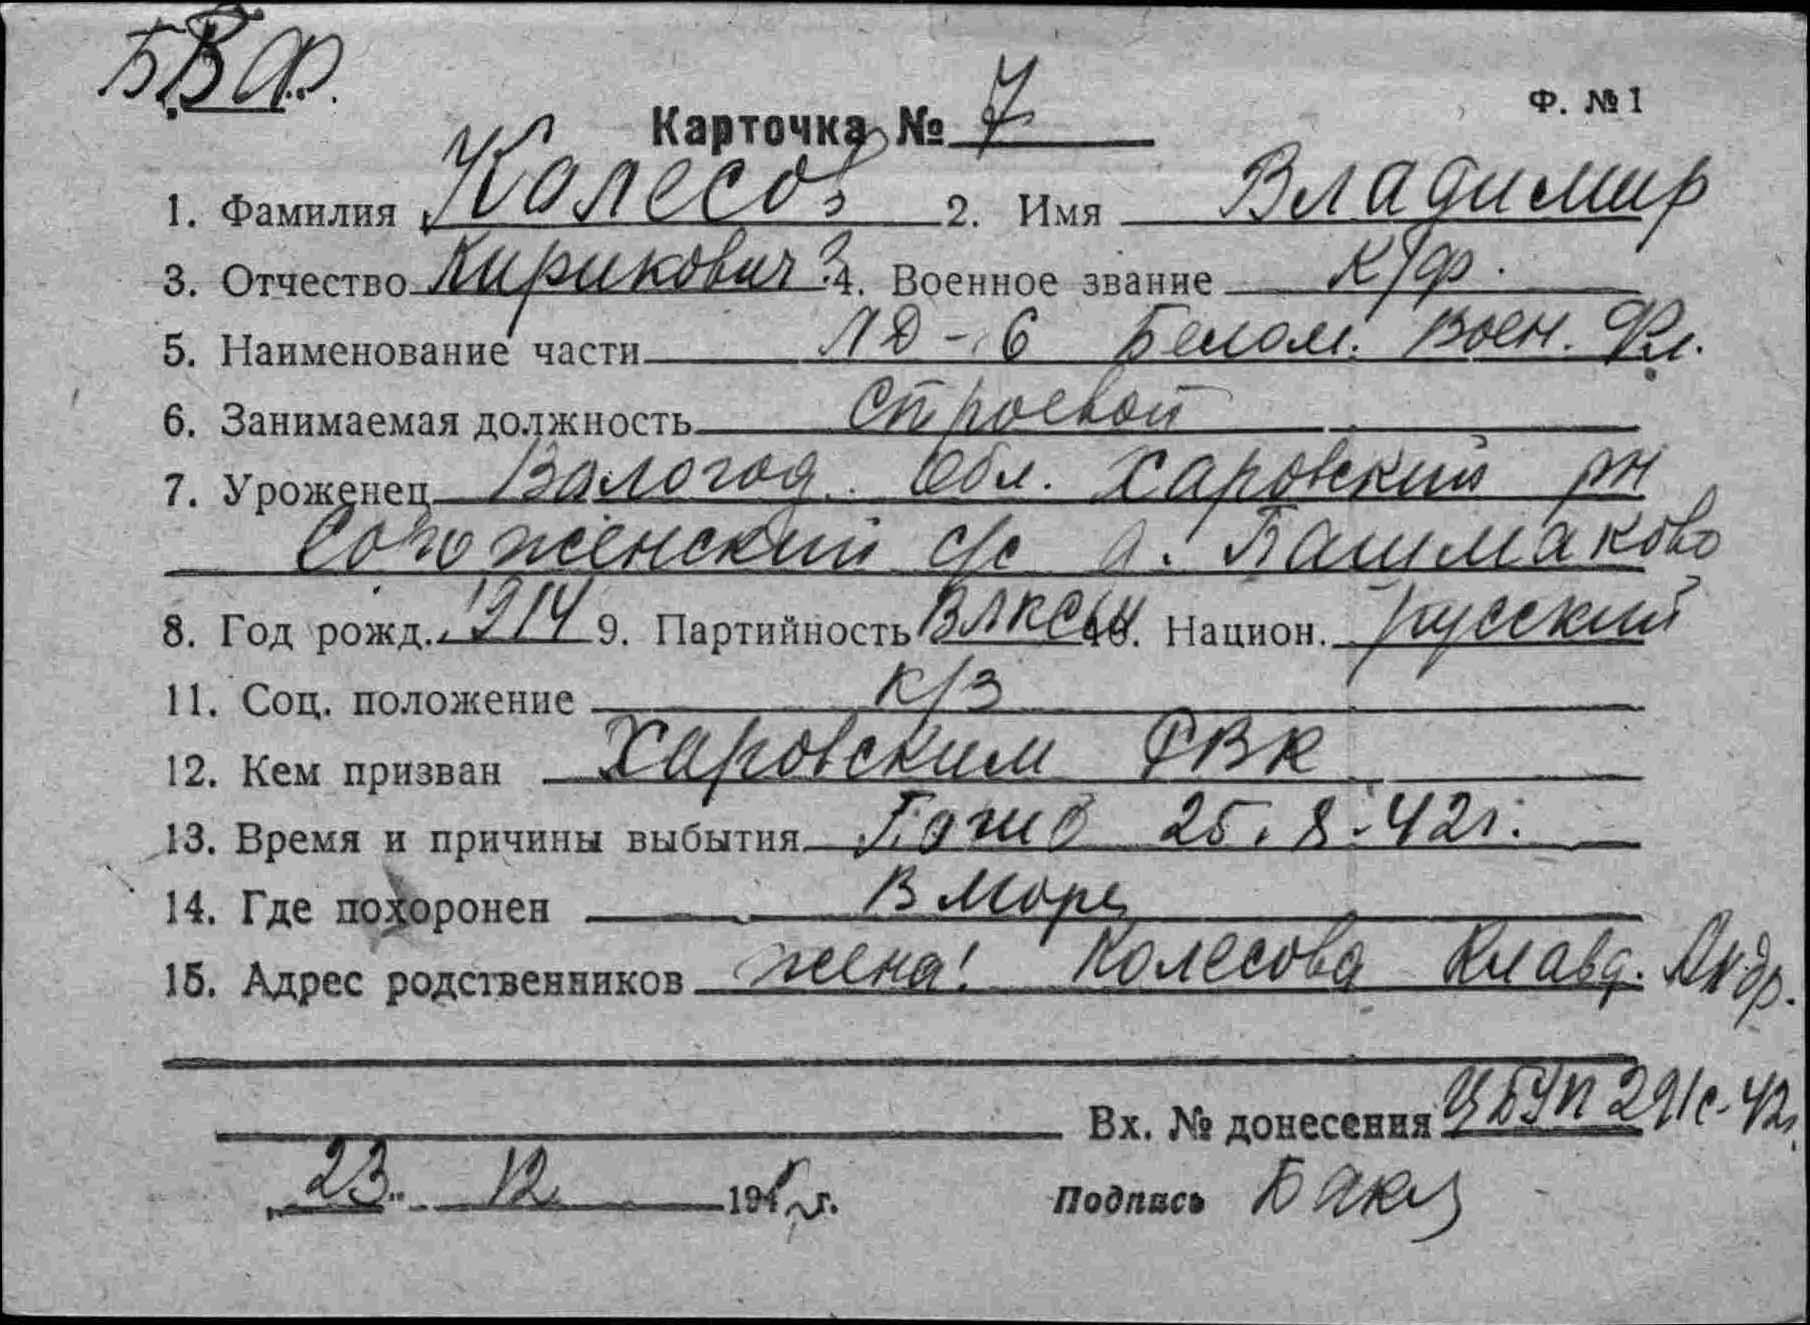 БВФ.
Ф. №1
Карточка № 7
1. Фамилия Колесов 2. Имя Владимир
3. Отчество Кирикович 4. Военное звание к/ф.
5. Наименование части ЛД-6 Белом. Воен. Фл.
6. Занимаемая должность строевой
7. Уроженец Вологод. обл. Харовский рн
с/с д. Башмаково
8. Год рожд. 1914 9. Партийность ВЛКСМ 10. Национ. русский
11. Соц. положение к/з
12. Кем призван Харовским РВК
13. Время и причины выбытия Погиб 25.8.42г.
14. Где похоронен В море
15. Адрес родственников жена: Колесова Клавд. Андр.
Вх. № донесения ЦБУП 291с-42г.
23 12 194 г. Подпись